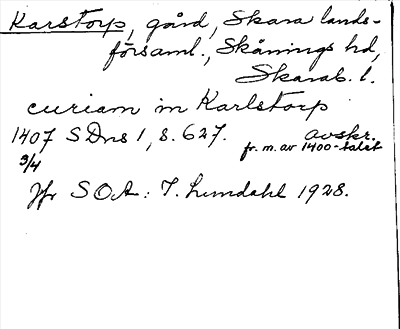 Karstorp, gård, Skara lands-
församl., Skånings hd,
Skarab. l.
curiam in Karlstorp
1407 SDns 1, s. 627. avskr.
3/4 fr. m. av 1400-talet
Jfr SOA: I. Lundahl 1928.